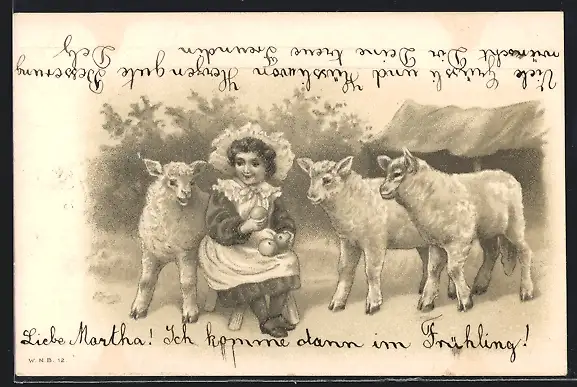 Viele Grüssli und Küssli von Herzen gute Besserung
wünscht Dir Deine treue Freundin
Liebe Martha! Ich komme dann im Frühling!
W.N.B. 12